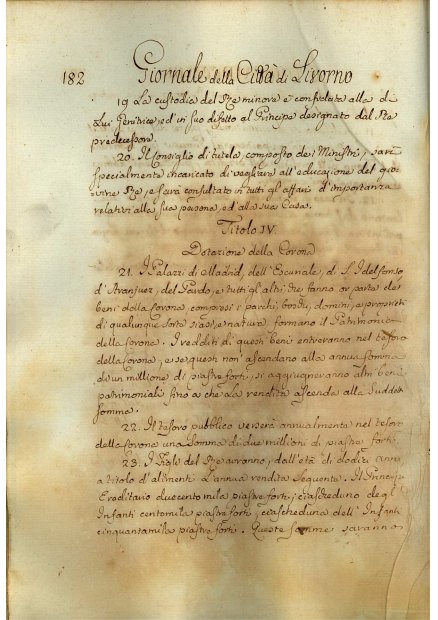 182
Giornale della Città di Livorno
19. La custodia del Re minore è confidata alla di
Lui Genitrice, ed in suo difetto al Principe designato dal Re
predecessore.
20. Il Consiglio di tutela composto dei Ministri, sarà
specialmente incaricato di vegliare all'educazione del gio-
vine Re, e sarà consultato in tutti gl'affari d'importanza
relativi alla sua persona, ed alla sua Casa.
Titolo IV.
Dotazione della Corona
21. I Palazzi di Madrid, dell'Escuriale, di S. Idelfonso
d'Aranjuez, del Pardo, e tutti gl'altri che fanno or parte dei
beni della Corona, compresi i parchi, boschi, domini, e proprietà
di qualunque sorta siasi, e natura, formano il Patrimonio
della Corona. I redditi di questi beni entreranno nel tesoro
della Corona, e se questi non ascendano alla annua somma
di un millione di piastre forti, si aggiugneranno altri beni
patrimoniali fino a che la rendita ascenda alla suddetta
somma.
22. Il tesoro pubblico verserà annualmente nel tesoro
della Corona una somma di due millioni di piastre forti.
23. I Figli del Re avranno, dall'età di dodici anni
a titolo d'alimenti l'annua rendita seguente. Il Principe
Ereditario duecento mila piastre forti; ciascheduno degl'
Infanti centomila piastre forti; ciascheduna dell'Infante
cinquantamila piastre forti. Queste somme saranno